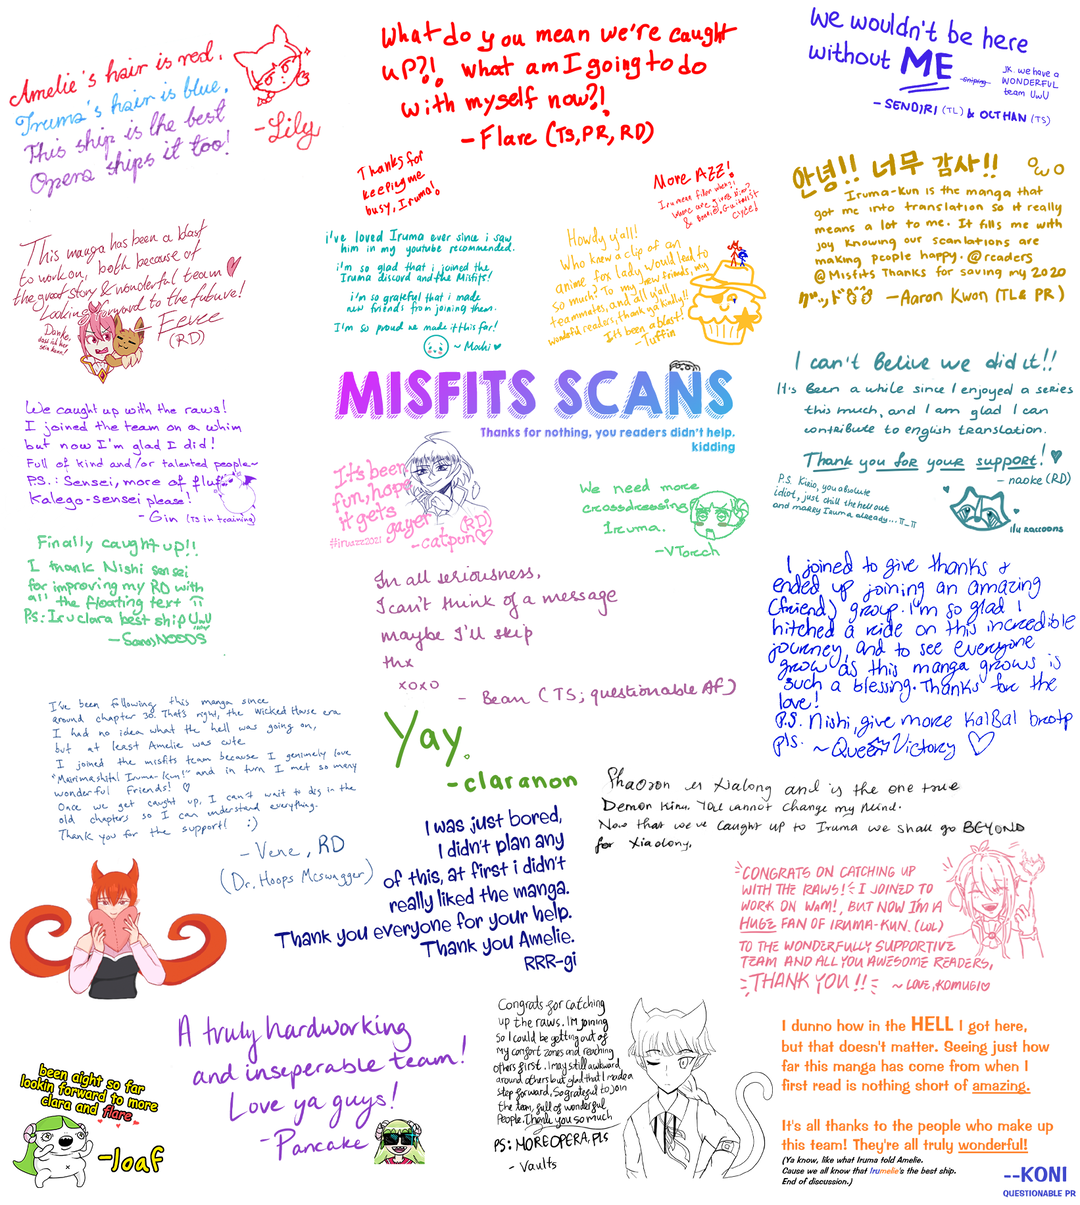 Amelie's hair is red,
Iruma's hair is blue,
This ship is the best
Opera ships it too!
-Lily
What do you mean we're caught
up?! what am I going to do
with myself now?!
- Flare (TS, PR, RD)
Thanks for
keeping me
busy, Iruma!
More AZZ!
We wouldn't be here
without ME
JK. we have a
WONDERFUL
team UwU
- SENDIRI (TL) & OCTHAN (TS)
안녕!! 너무 감사!!
OwO
Iruma-Kun is the manga that
got me into translation so it really
means a lot to me. It fills me with
joy knowing our scanlations are
making people happy. @readers
@Misfits Thanks for saving my 2020
- Aaron Kwon (TL & PR)
This manga has been a blast
to work on, both because of
the great story & wonderful team
Looking forward to the future!
- Eevee
(RD)
i've loved Iruma ever since i saw
him in my youtube recommended.
i'm so glad that i joined the
Iruma discord and the Misfits!
i'm so grateful that i made
new friends from joining them.
I'm so proud we made it this far!
~ Mochi ♥
Howdy y'all!
Who knew a clip of an
anime fox lady would lead to
so much? To my new friends, my
teammates, and all y'all
wonderful readers, thank ya kindly!!
It's been a blast!
-Tuffin
I can't Belive we did it!!
It's Been a while since I enjoyed a series
this much, and I am glad I can
contribute to english translation.
Thank you for your support! ♥
- naoke (RD)
P.S. Kirio, you absolute
idiot, just chill the hell out
and marry Iruma already... π_π
ilu raccoons
MISFITS SCANS
Thanks for nothing, you readers didn't help.
kidding
We caught up with the raws!
I joined the team on a whim
but now I'm glad I did!
Full of kind and/or talented people~
P.S.: Sensei, more of fluffy
Kalego-sensei please!
- Gin (TS in training)
It's been
fun, hope
it gets
gayer
#iruazz2021
(RD)
-catpun♡
We need more
crossdressing
Iruma.
-VTorech
Finally caught up!!
I thank Nishi sensei
for improving my RD with
all the floating text π
Ps: Iruclara best ship UwU
In all seriousness,
I can't think of a message
maybe I'll skip
thx
xoxo
- Bean (TS; questionable Af)
I joined to give thanks +
ended up joining an amazing
(friend) group. I'm so glad I
hitched a ride on this incredible
journey, and to see everyone
grow as this manga grows is
such a blessing. Thanks for the
love!
P.S. Nishi, give more KalBal
pls. ~ Queen Victory ♡
I've been following this manga since
around chapter 30. That's right, the Wicked House era
I had no idea what the hell was going on,
but at least Amelie was cute
I joined the misfits team because I genuinely love
"Mairimashita! Iruma-kun!" and in turn I met so many
wonderful friends! ♡
Once we get caught up, I can't wait to dig in the
old chapters so I can understand everything.
Thank you for the support! :)
- Vene, RD
(Dr. Hoops Mcswagger)
Yay.
-claranon
I was just bored,
I didn't plan any
of this, at first i didn't
really liked the manga.
Thank you everyone for your help.
Thank you Amelie.
RRR-gi
and is the one true
Demon King. You cannot change my mind.
Now that we've caught up to Iruma we shall go BEYOND
for Xiaolong.
CONGRATS ON CATCHING UP
WITH THE RAWS! I JOINED TO
WORK ON WAM!, BUT NOW I'M A
HUGE FAN OF IRUMA-KUN. (LOL)
TO THE WONDERFULLY SUPPORTIVE
TEAM AND ALL YOU AWESOME READERS,
THANK YOU!!
~ LOVE, KOMUGI♡
A truly hardworking
and inseperable team!
Love ya guys!
- Pancake
been aight so far
lookin forward to more
clara and flare
-loaf
Congrats for catching
up the raws. I'm joining
so I could be getting out of
my comfort zones and reaching
others first. I may still awkward
around others but glad that I made a
step forward, so grateful to join
the team, full of wonderful
people. Thank you so much
PS: MORE OPERA, PLS
- Vaults
I dunno how in the HELL I got here,
but that doesn't matter. Seeing just how
far this manga has come from when I
first read is nothing short of amazing.
It's all thanks to the people who make up
this team! They're all truly wonderful!
(Ya know, like what Iruma told Amelie.
Cause we all know that Irumelie's the best ship.
End of discussion.)
--KONI
QUESTIONABLE PR